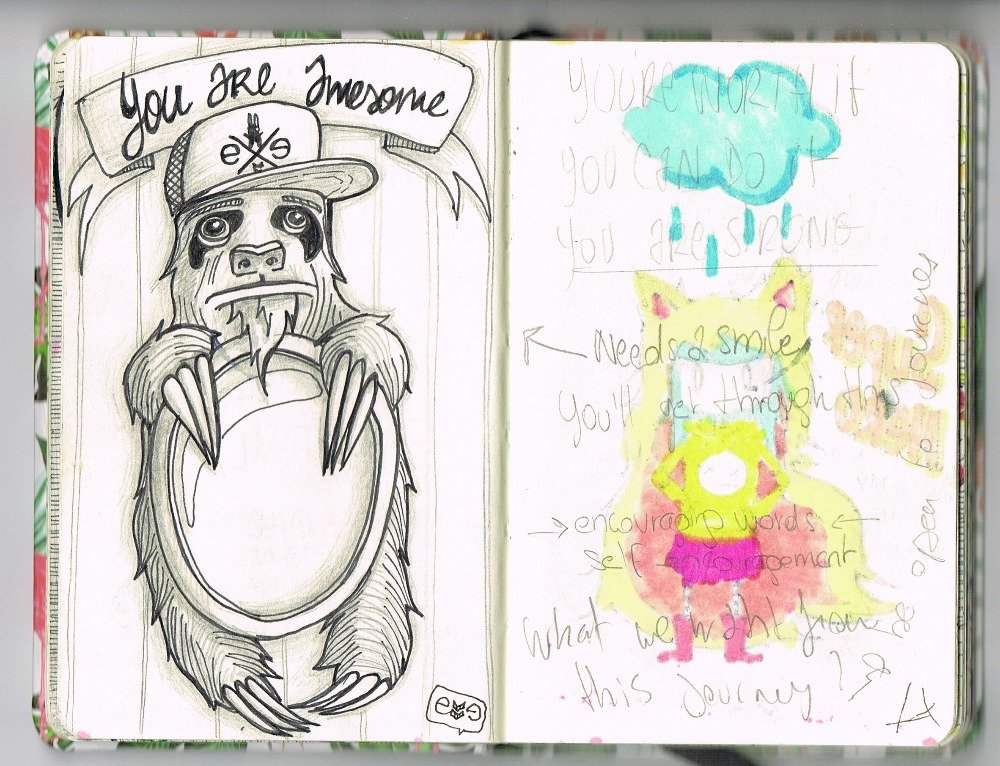 You Are Awesome
e e
e e
YOU'RE WORTH IT
YOU CAN DO IT
YOU ARE STRONG
Needs a smile
You'll get through this
→ encouraging words ←
self encouragement
What we want from
this journey?
open to